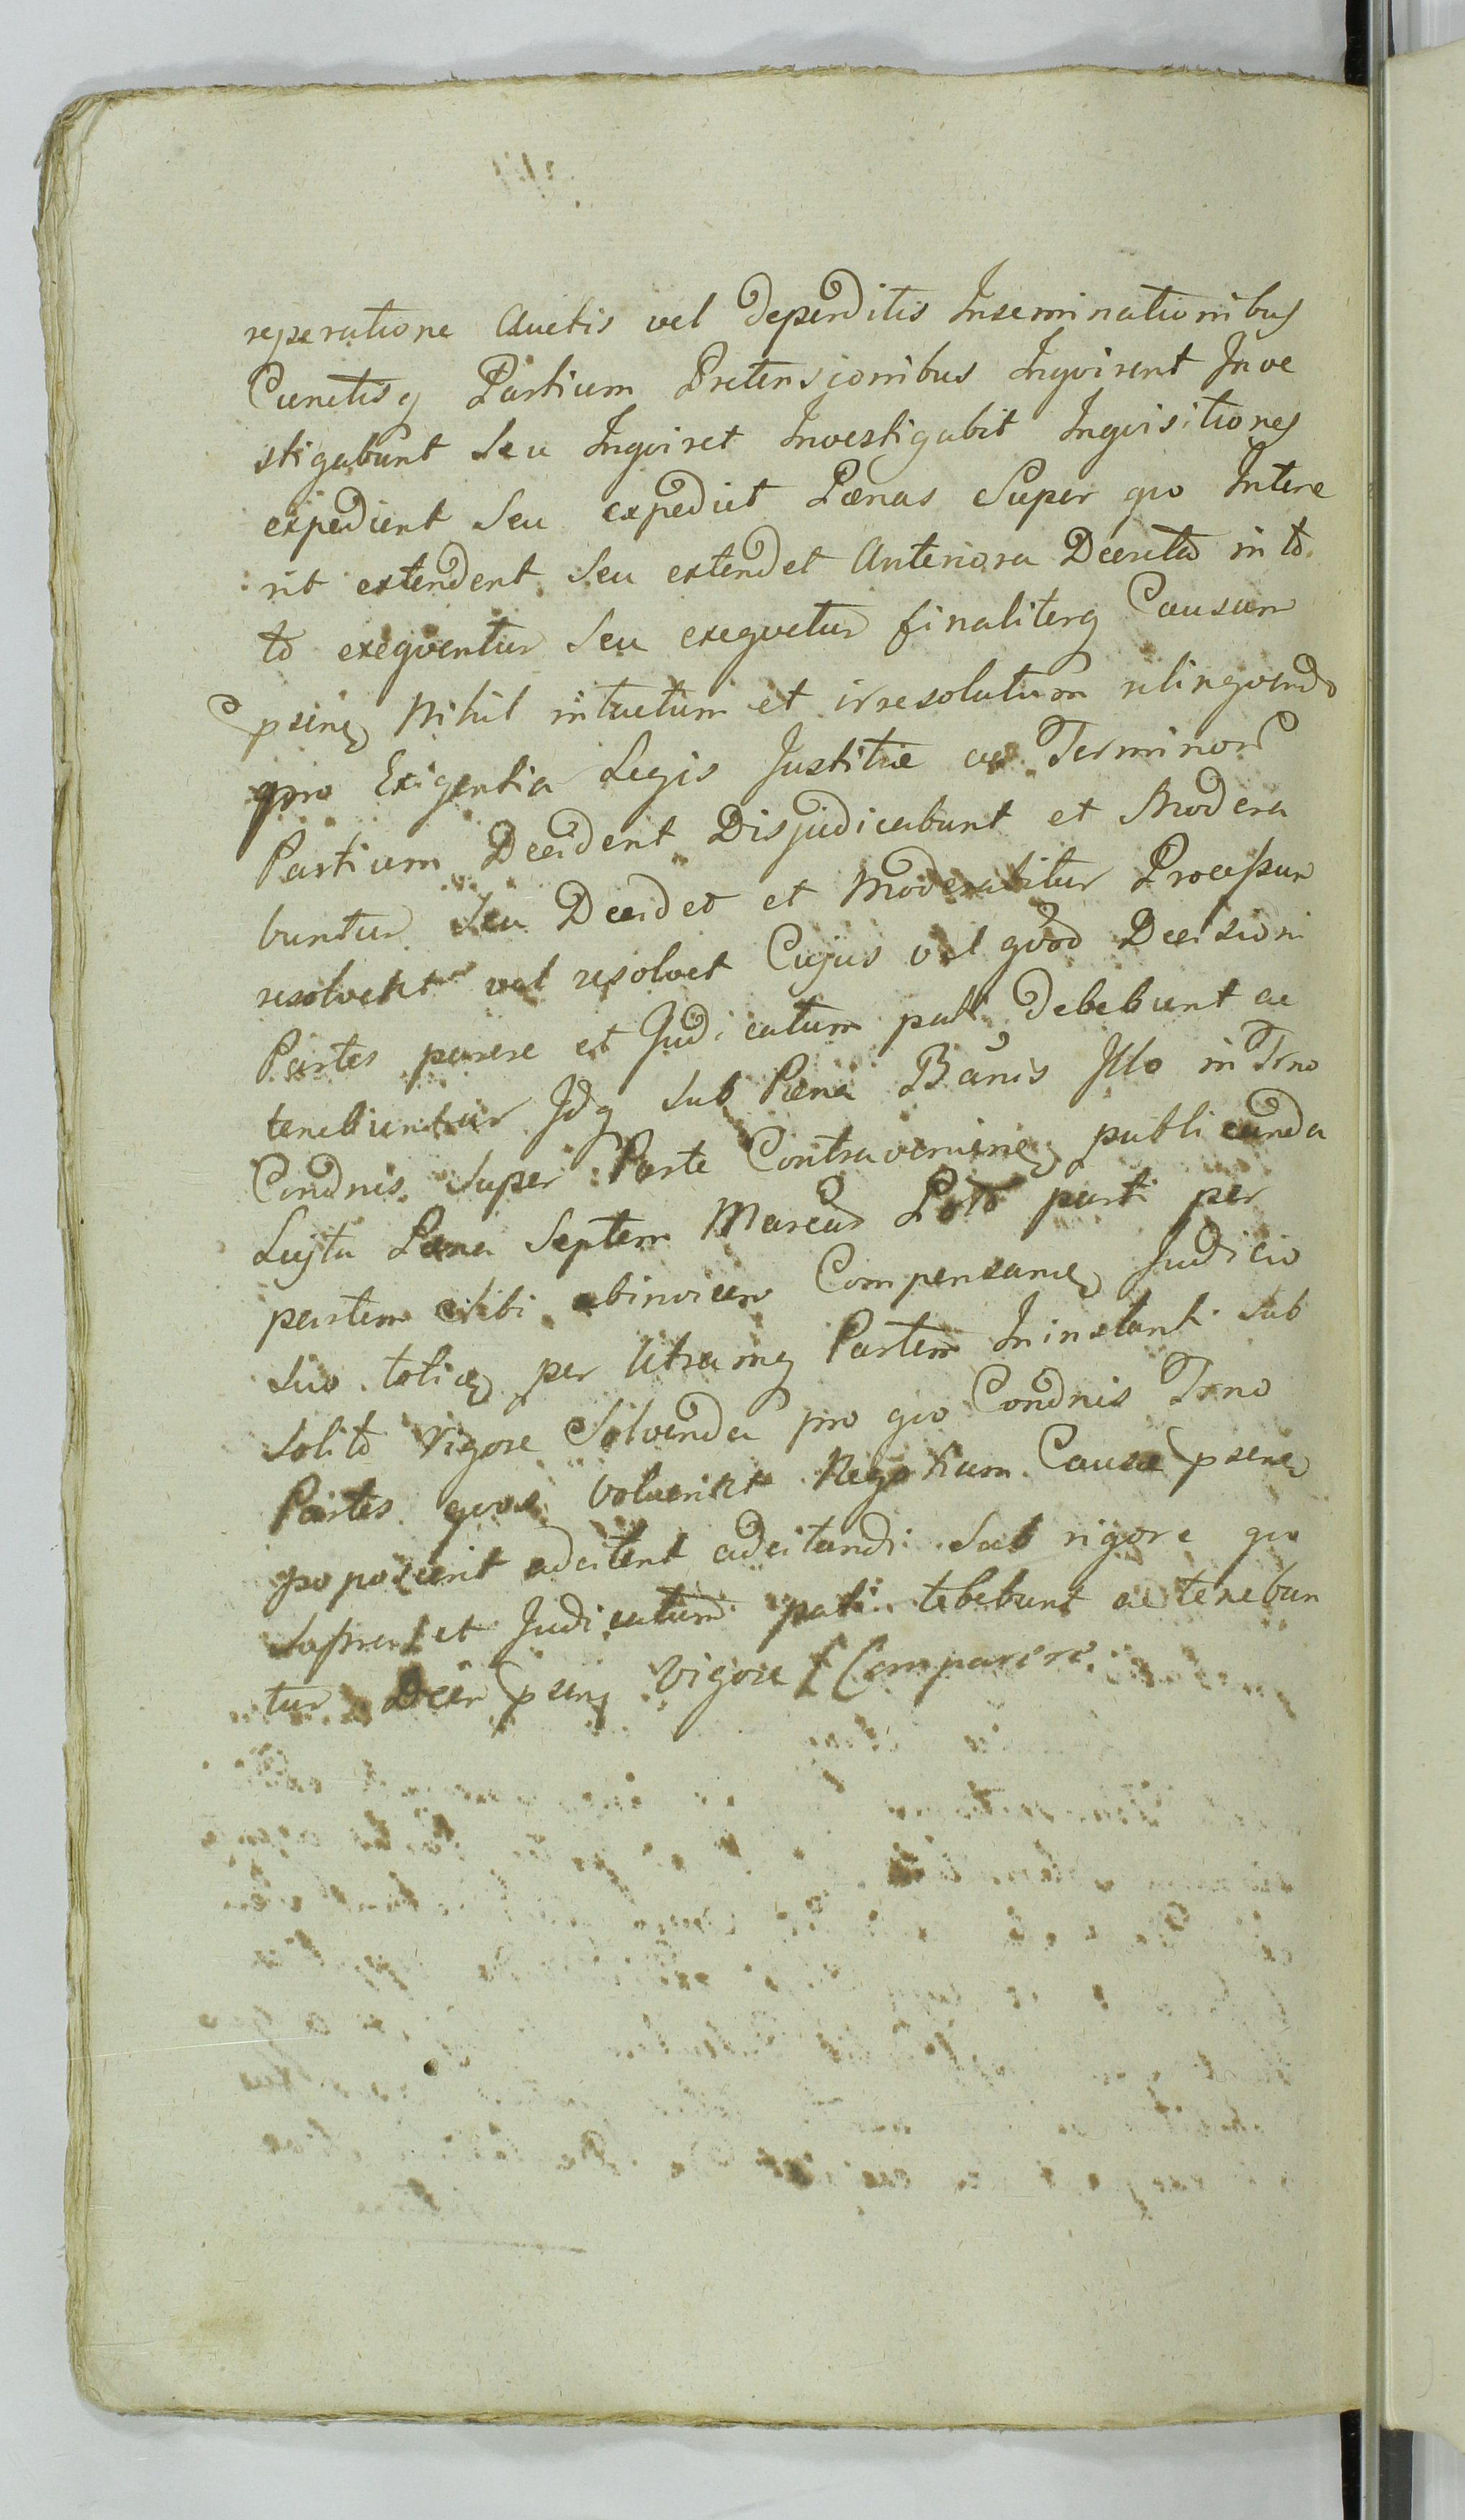 reperatione Auctis vel deperditis Inseminationibus
Cunctisq Partium Pretensionibus Inqvirent Inve
stigabunt Seu Inqviret Investigabit Inqvisitiones
expedient Seu expediet Pœnas Super qvo Intere
rit extendent Seu extendet Anteriora Decreta in to
to exeqventur Seu exeqvetur finaliterq Causam
psene Nihil intactum et irresolutum relinqvendo
pro Exigentia Legis Justitiæ ac Terminor
Partium Decident Disjudicabunt et Modera
buntur Seu Decidet et Moderabitur Processum
resolvent vel resolvet Cujus vel qvod Decisioni
Partes parere et Judicatum pati debebunt ac
tenebuntur Idq Sub Pœna Banis Illo in Trno
Condnis Super Parte Contraveniene publicanda
Lujta Pœna Septem Marcas Poło parti per
partem Sibi abinvicem Compensand Judicio
Suo toties per Utramq Partem In instanti Sub
Solito Vigore Solvenda pro qvo Condnis Trno
Partes qvos Voluerint Negotium Causæ psene
poposcerit adcitent adcitandi Sub rigore qvo
Supra et Judicatum pati tebebunt ac tenebun
tur Decr psenq Vigore Comparere.